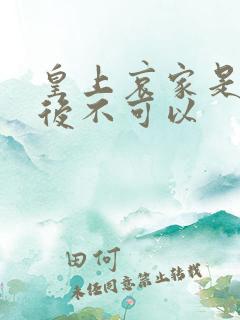 皇上哀家是
後不可以
田何
未经同意禁止转载